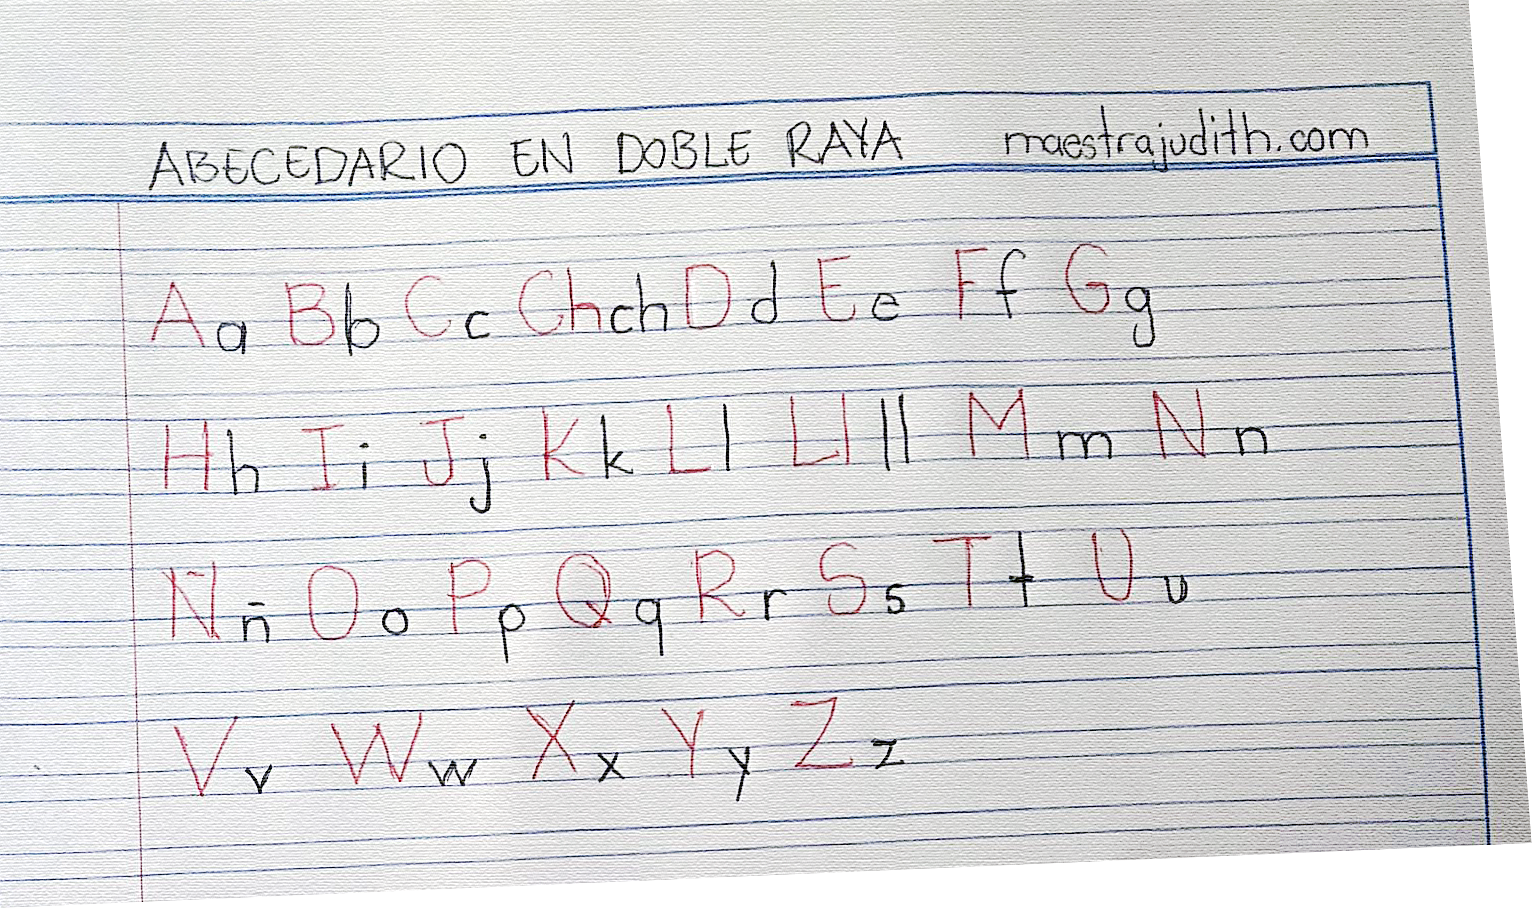 ABECEDARIO EN DOBLE RAYA maestrajudith.com
Aa Bb Cc Chch Dd Ee Ff Gg
Hh Ii Jj Kk Ll Ll ll Mm Nn
Ññ Oo Pp Qq Rr Ss Tt Uu
Vv Ww Xx Yy Zz